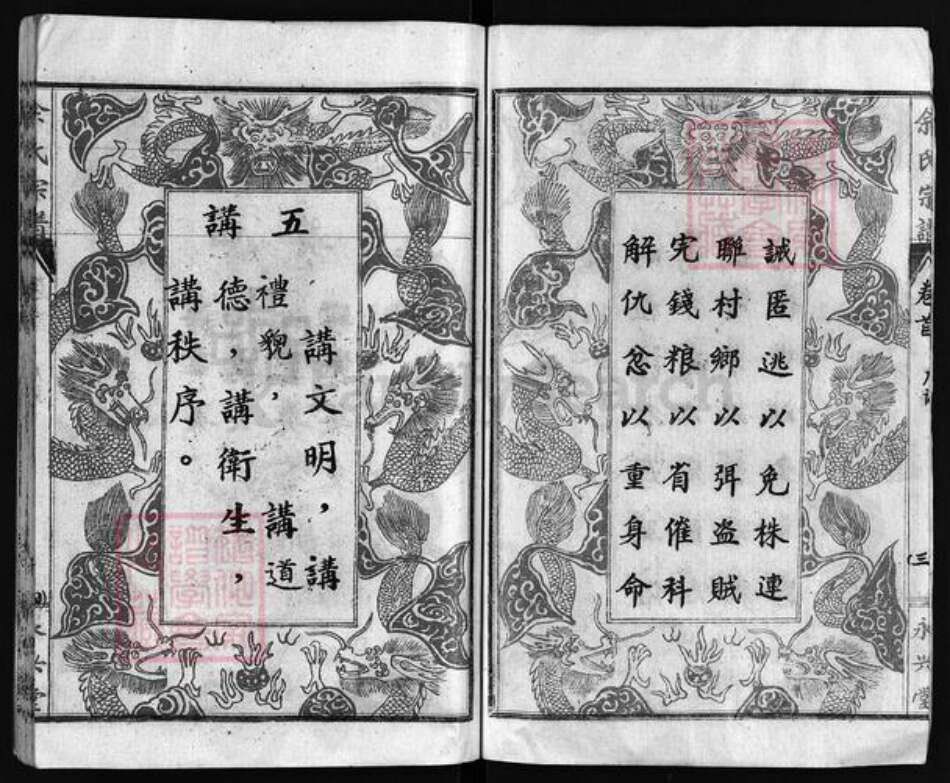 余氏宗譜
卷首
三
永兴堂
誡匿逃以免株連
聯村鄉以弭盗賊
完錢粮以省催科
解仇忿以重身命
五講
講文明，講
禮貌，講道
德，講衛生，
講秩序。